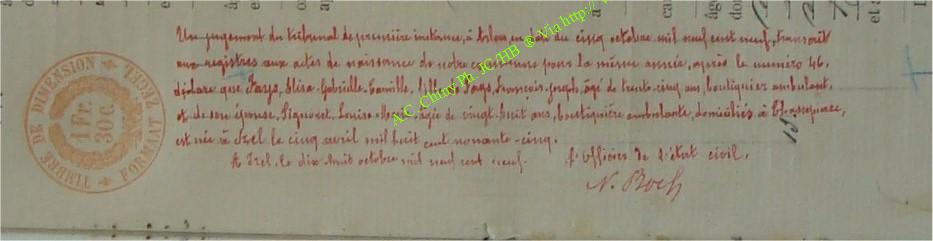 Un jugement du tribunal de première instance, à Arlon, en date du cinq octobre mil neuf cent neuf, transcrit
aux registres aux actes de naissance de notre commune pour la même année, après le numéro 46,
déclare que Fays, Elisa-Gabrielle-Camille, fille de Fays, François-Joseph, âgé de trente cinq ans, boutiquier ambulant,
et de son épouse, Signoret, Louise âgée de vingt huit ans, boutiquière ambulante, domiciliés à
est née à Izel le cinq avril mil huit cent nonante-cinq.
A Izel, le dix huit octobre mil neuf cent neuf.
L'Officier de l'état civil,
TIMBRE DE DIMENSION
FORMAT
1 Fr.
30 C.
A.C. Chiny Ph. JC/HB @ Via http://